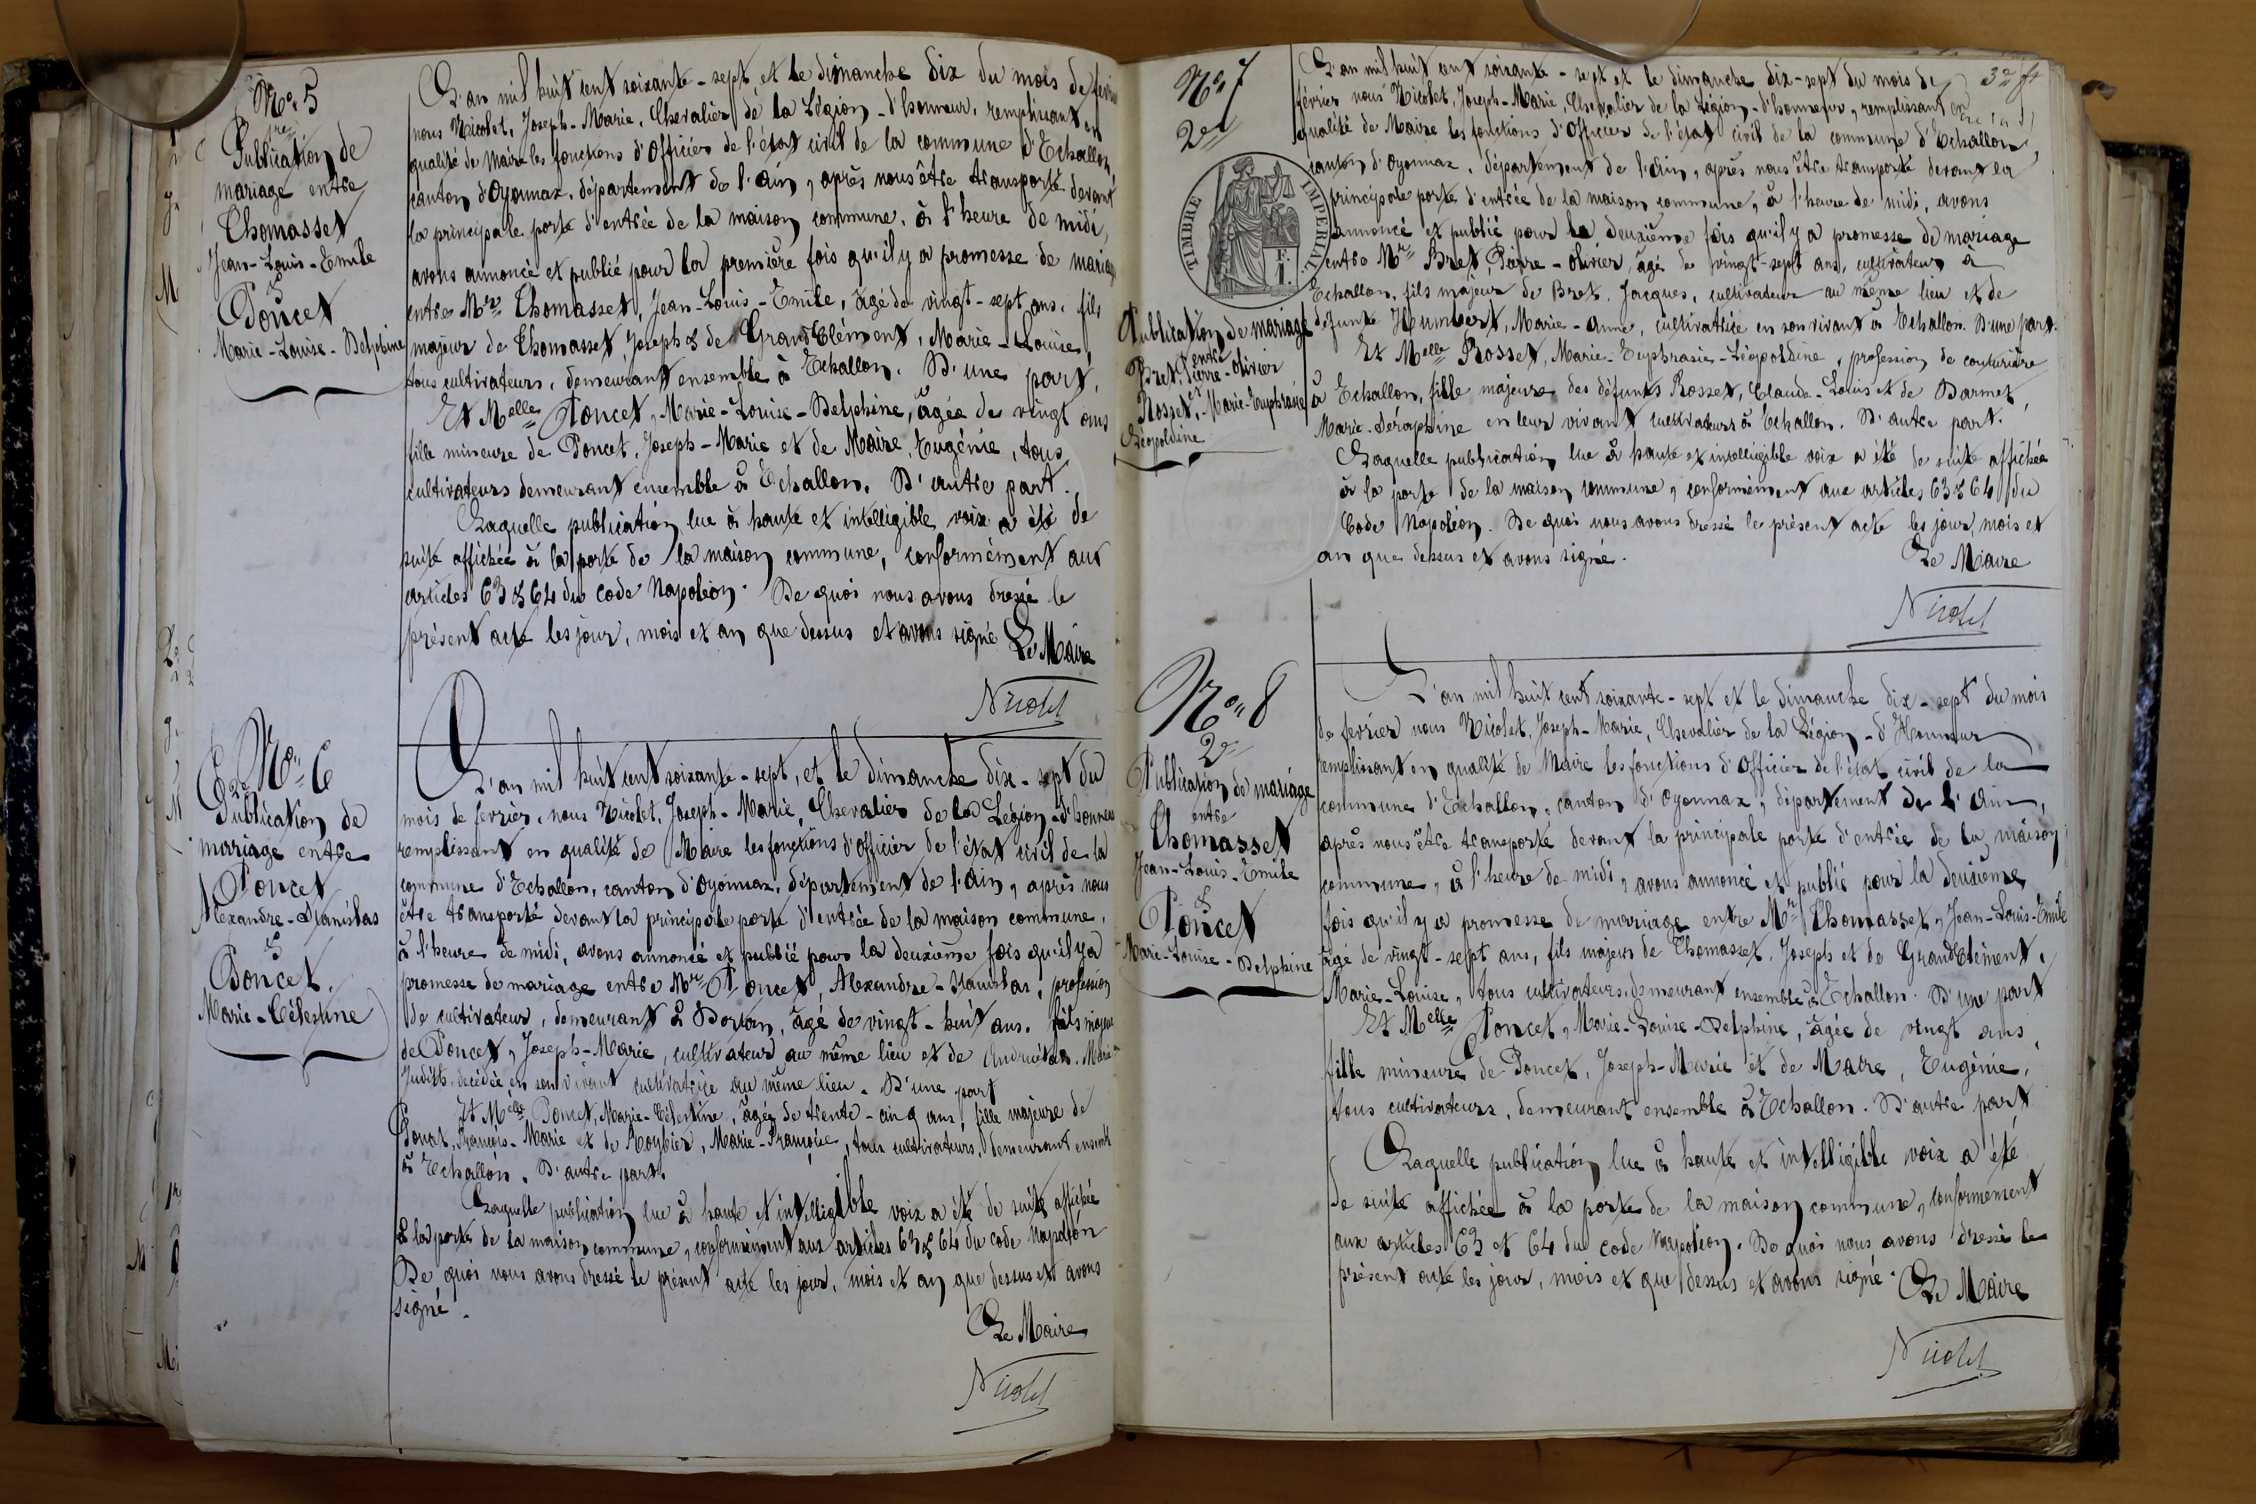 No. 5
1re
Publication de
mariage entre
Thomasset
Jean-Louis-Emile
&
Poncet
Marie-Louise-Delphine
L'an mil huit cent soixante-sept, et le dimanche dix du mois de février
nous Nicolet, Joseph-Marie, Chevalier de la Légion-d'honneur, remplissant en
qualité de Maire les fonctions d'Officier de l'état civil de la commune d'Echallon,
canton d'Oyonnax, département de l'Ain, après nous être transporté devant
la principale porte d'entrée de la maison commune, à l'heure de midi,
avons annoncé et publié pour la première fois qu'il y a promesse de mariage
entre Mr Thomasset, Jean-Louis-Emile, âgé de vingt-sept ans, fils
majeur de Thomasset, Joseph & de GrandClément, Marie-Louise,
tous cultivateurs, demeurant ensemble à Echallon. D'une part,
Et Melle Poncet, Marie-Louise-Delphine, âgée de vingt ans
fille mineure de Poncet, Joseph-Marie et de Maire, Eugénie, tous
cultivateurs demeurant ensemble à Echallon. D'autre part.
Laquelle publication lue à haute et intelligible voix a été de
suite affichée à la porte de la maison commune, conformément aux
articles 63 & 64 du Code Napoléon. De quoi nous avons dressé le
présent acte les jour, mois et an que dessus et avons signé
Le Maire
Nicolet
No. 6
2e
Publication de
mariage entre
Poncet
Alexandre-Stanislas
&
Poncet,
Marie-Célestine
L'an mil huit cent soixante-sept, et le dimanche dix-sept du
mois de février, nous Nicolet, Joseph-Marie, Chevalier de la Légion-d'honneur
remplissant en qualité de Maire les fonctions d'Officier de l'état civil de la
commune d'Echallon, canton d'Oyonnax, département de l'Ain, après nous
être transporté devant la principale porte d'entrée de la maison commune,
à l'heure de midi, avons annoncé et publié pour la deuxième fois qu'il y a
promesse de mariage entre Mr Poncet, Alexandre-Stanislas, profession
de cultivateur, demeurant à Dortan, âgé de vingt-huit ans, fils majeur
de Poncet, Joseph-Marie, cultivateur au même lieu et de Marie
Judith, décédée en son vivant cultivatrice au même lieu. D'une part
Et Melle Poncet, Marie-Célestine, âgée de trente-cinq ans, fille majeure de
Poncet, François-Marie et de Marie-Françoise, tous cultivateurs, demeurant ensemble
à Echallon. D'autre part.
Laquelle publication lue à haute et intelligible voix a été de suite affichée
à la porte de la maison commune, conformément aux articles 63 & 64 du code Napoléon
De quoi nous avons dressé le présent acte les jour, mois et an que dessus et avons
signé.
Le Maire
Nicolet
No. 7
2e
TIMBRE IMPERIAL
F.
1.
Publication de mariage
entre
Bret, Pierre-Olivier
et
Rosset, Marie-Euphrasie
Léopoldine
L'an mil huit cent soixante-sept et le dimanche dix-sept du mois de
février nous Nicolet, Joseph-Marie, Chevalier de la Légion-d'honneur, remplissant en
qualité de Maire les fonctions d'Officier de l'état civil de la commune d'Echallon,
canton d'Oyonnax, département de l'Ain, après nous être transporté devant la
principale porte d'entrée de la maison commune, à l'heure de midi, avons
annoncé et publié pour la deuxième fois qu'il y a promesse de mariage
entre Mr Bret, Pierre-Olivier, âgé de vingt-sept ans, cultivateur à
Echallon, fils majeur de Bret, Jacques, cultivateur au même lieu et de
défunte Humbert, Marie-Anne, cultivatrice en son vivant à Echallon. D'une part.
Et Melle Rosset, Marie-Euphrasie-Léopoldine, profession de couturière
à Echallon, fille majeure des défunts Rosset, Claude-Louis et de Darmet,
Marie-Séraphine en leur vivant cultivateurs à Echallon. D'autre part.
Laquelle publication lue à haute et intelligible voix a été de suite affichée
à la porte de la maison commune, conformément aux articles 63 & 64 du
Code Napoléon. De quoi nous avons dressé le présent acte les jour, mois et
an que dessus et avons signé.
Le Maire
Nicolet
No. 8
2e
Publication de mariage
entre
Thomasset
Jean-Louis-Emile
&
Poncet
Marie-Louise-Delphine
L'an mil huit cent soixante-sept et le dimanche dix-sept du mois
de février nous Nicolet, Joseph-Marie, Chevalier de la Légion-d'Honneur
remplissant en qualité de Maire les fonctions d'Officier de l'état civil de la
commune d'Echallon, canton d'Oyonnax, département de l'Ain,
après nous être transporté devant la principale porte d'entrée de la maison
commune, à l'heure de midi, avons annoncé et publié pour la deuxième
fois qu'il y a promesse de mariage entre Mr Thomasset, Jean-Louis-Emile
âgé de vingt-sept ans, fils majeur de Thomasset, Joseph et de GrandClément,
Marie-Louise, tous cultivateurs, demeurant ensemble à Echallon. D'une part
Et Melle Poncet, Marie-Louise-Delphine, âgée de vingt ans,
fille mineure de Poncet, Joseph-Marie et de Maire, Eugénie,
tous cultivateurs, demeurant ensemble à Echallon. D'autre part
Laquelle publication lue à haute et intelligible voix a été
de suite affichée à la porte de la maison commune, conformément
aux articles 63 et 64 du code Napoléon. De quoi nous avons dressé le
présent acte les jour, mois et que dessus et avons signé.
Le Maire
Nicolet